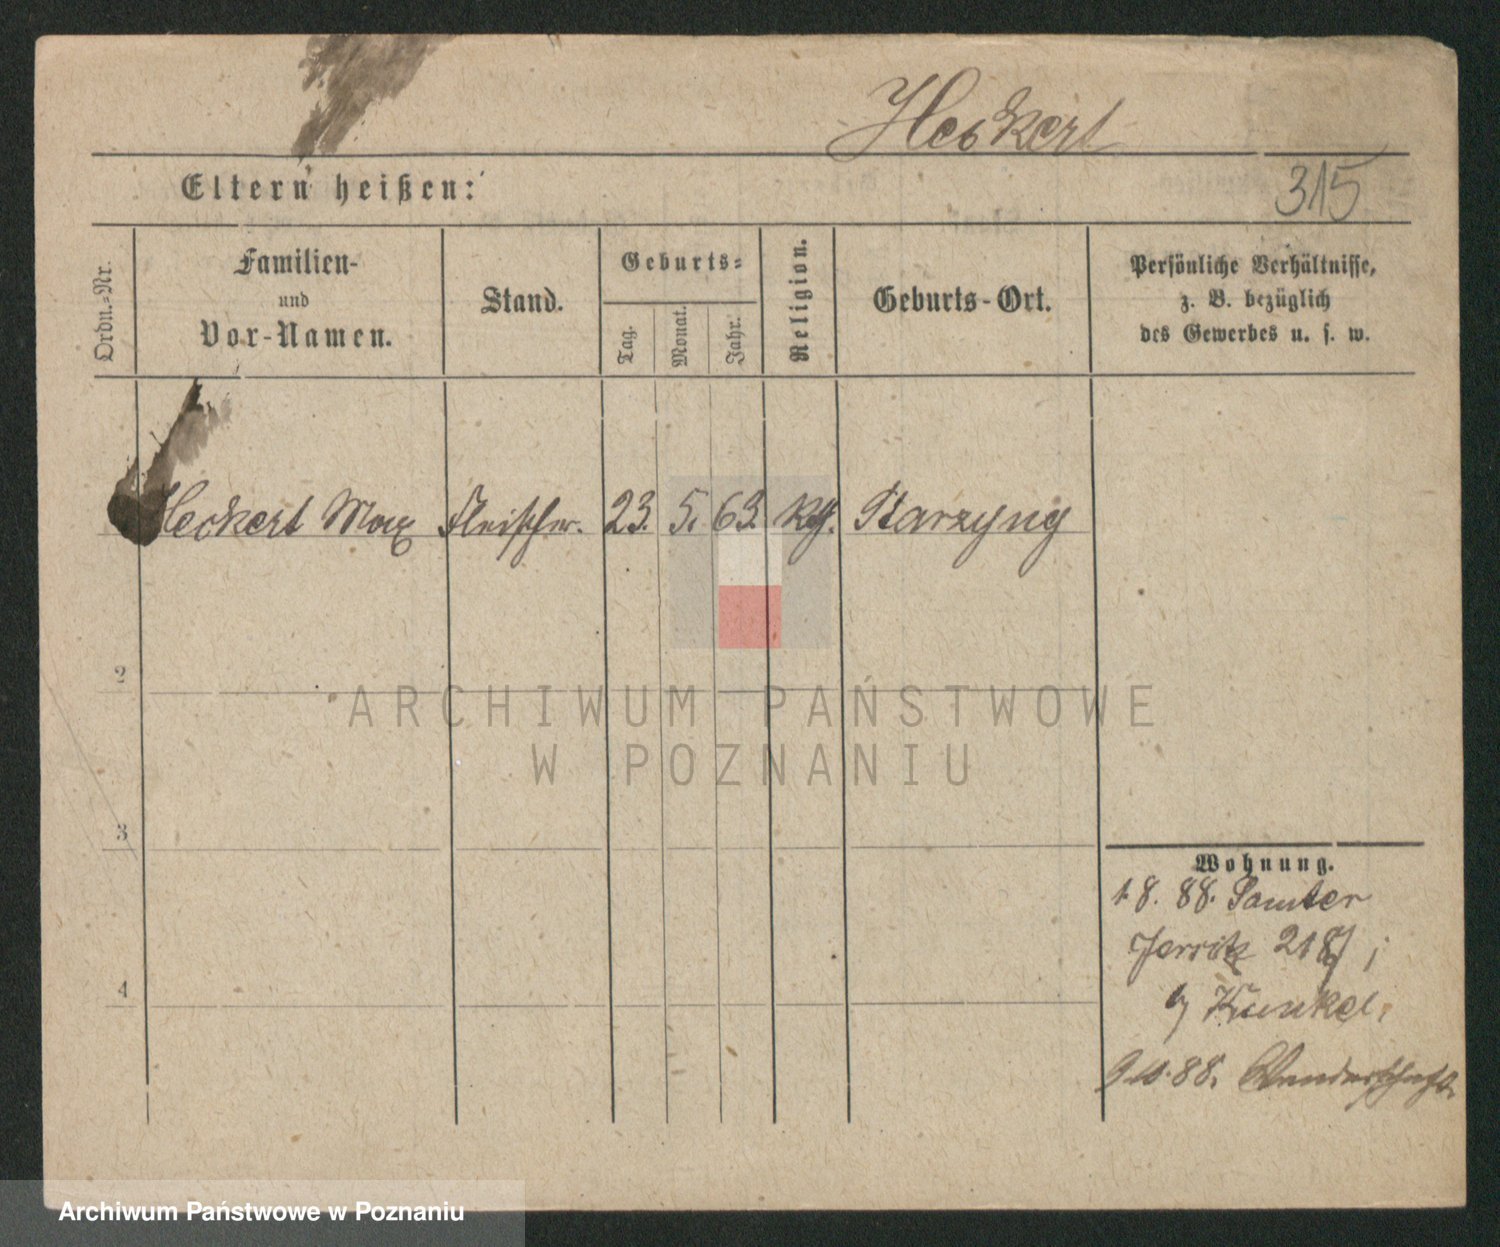 Heckert
Eltern heißen:
315
Ordn.-Nr.
Familien-
und
Vor-Namen.
Stand.
Geburts-
Tag.
Monat.
Jahr.
Religion.
Geburts-Ort.
Persönliche Verhältnisse,
z. B. bezüglich
des Gewerbes u. s. w.
Heckert Max Fleischer. 23. 5. 63. kth.
2
3
4
Wohnung.
1. 8. 88. Samter
Jersitz 218
Kunkel,
88. Wanderschaft.
ARCHIWUM PAŃSTWOWE
W POZNANIU
Archiwum Państwowe w Poznaniu